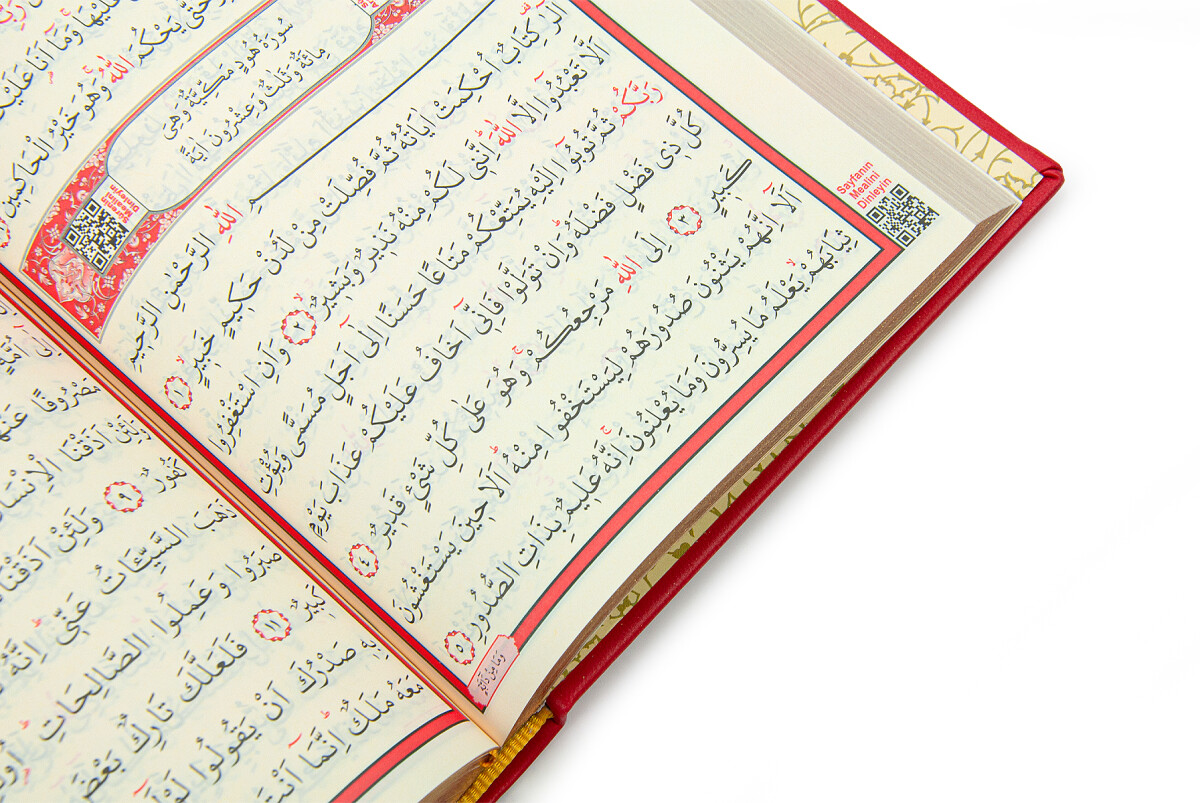 حَتّٰى يَحْكُمَ اللّٰهُ وَهُوَ خَيْرُ الْحَاكِمِينَ
سُورَةُ هُودٍ مَكِّيَّةٌ وَهِىَ
مِائَةٌ وَثَلٰثٌ وَعِشْرُونَ اٰيَةً
Sûrenin
Mealini
Dinleyin
بِسْمِ اللّٰهِ الرَّحْمٰنِ الرَّحِيمِ
الٓرٰ كِتَابٌ اُحْكِمَتْ اٰيَاتُهُ ثُمَّ فُصِّلَتْ مِنْ لَدُنْ حَكِيمٍ خَبِيرٍ ﴿١﴾
اَلَّا تَعْبُدُوٓا اِلَّا اللّٰهَ اِنَّنِى لَكُمْ مِنْهُ نَذِيرٌ وَبَشِيرٌ ﴿٢﴾ وَاَنِ اسْتَغْفِرُوا
رَبَّكُمْ ثُمَّ تُوبُٓوا اِلَيْهِ يُمَتِّعْكُمْ مَتَاعًا حَسَنًا اِلٰٓى اَجَلٍ مُسَمًّى وَيُؤْتِ
كُلَّ ذِى فَضْلٍ فَضْلَهُ وَاِنْ تَوَلَّوْا فَاِنِّٓى اَخَافُ عَلَيْكُمْ عَذَابَ يَوْمٍ
كَبِيرٍ ﴿٣﴾ اِلَى اللّٰهِ مَرْجِعُكُمْ وَهُوَ عَلٰى كُلِّ شَىْءٍ قَدِيرٌ ﴿٤﴾
اَلَٓا اِنَّهُمْ يَثْنُونَ صُدُورَهُمْ لِيَسْتَخْفُوا مِنْهُ اَلَا حِينَ يَسْتَغْشُونَ
ثِيَابَهُمْ يَعْلَمُ مَا يُسِرُّونَ وَمَا يُعْلِنُونَ اِنَّهُ عَلِيمٌ بِذَاتِ الصُّدُورِ ﴿٥﴾
وَمَا مِنْ دَٓابَّةٍ
Sayfanın
Mealini
Dinleyin
مَصْرُوفًا
اَذَقْنَا الْاِنْسَانَ
كَفُورٌ ﴿٩﴾ وَلَئِنْ اَذَقْنَاهُ
ذَهَبَ السَّيِّـَٔاتُ عَنِّى اِنَّهُ
صَبَرُوا وَعَمِلُوا الصَّالِحَاتِ
كَبِيرٌ ﴿١١﴾ فَلَعَلَّكَ تَارِكٌ بَعْضَ
بِهِ صَدْرُكَ اَنْ يَقُولُوا لَوْلَٓا
مَعَهُ مَلَكٌ اِنَّمَٓا اَنْتَ